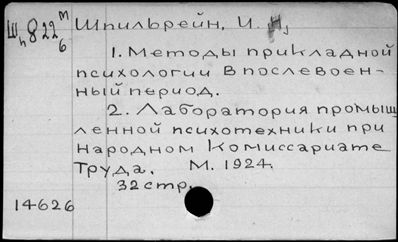 Шп822 м б
Шпильрейн, И. Н,
1. Методы прикладной
психологии в послевоен-
ный период.
2. Лаборатория промыш
ленной психотехники при
Народном Комиссариате
Труда. М. 1924.
32 стр.
14626